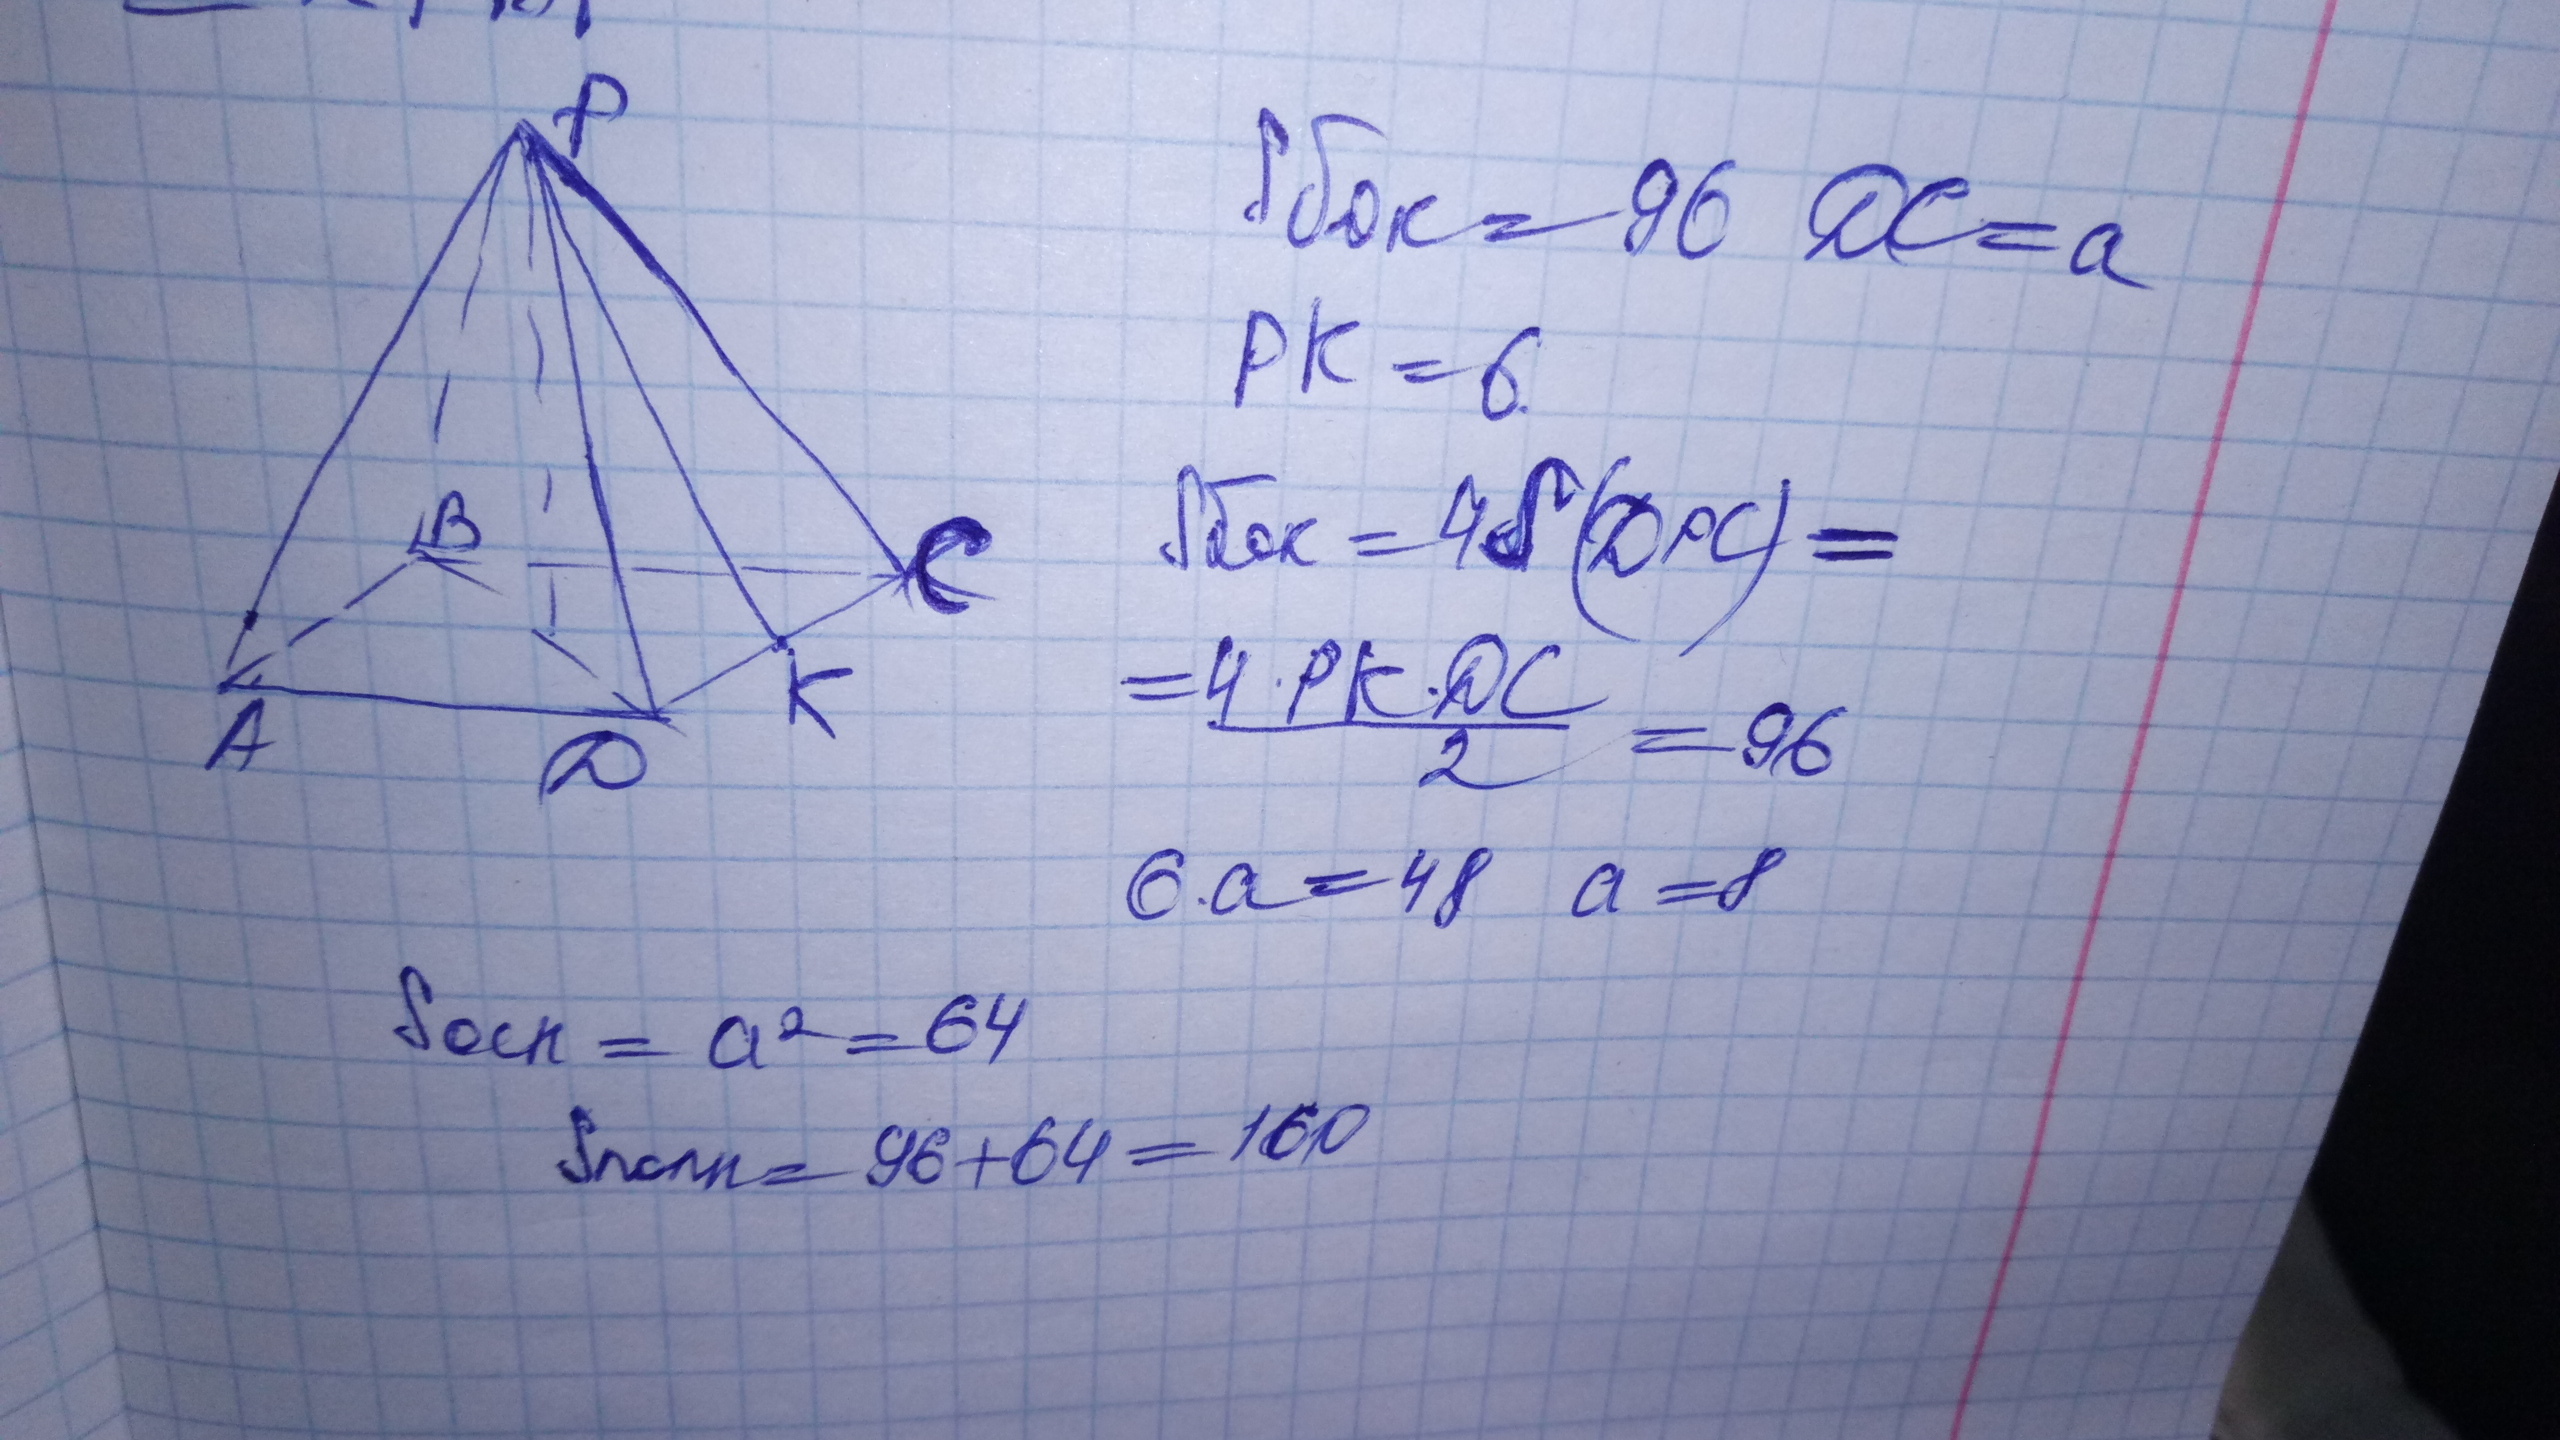 P
B
C
A
D
K
Sбок = 96 DC = a
PK = 6.
Sбок = 4S(DPC) =
= 4·PK·DC / 2 = 96
6·a = 48 a = 8
Sосн = a² = 64
Sполн = 96 + 64 = 160